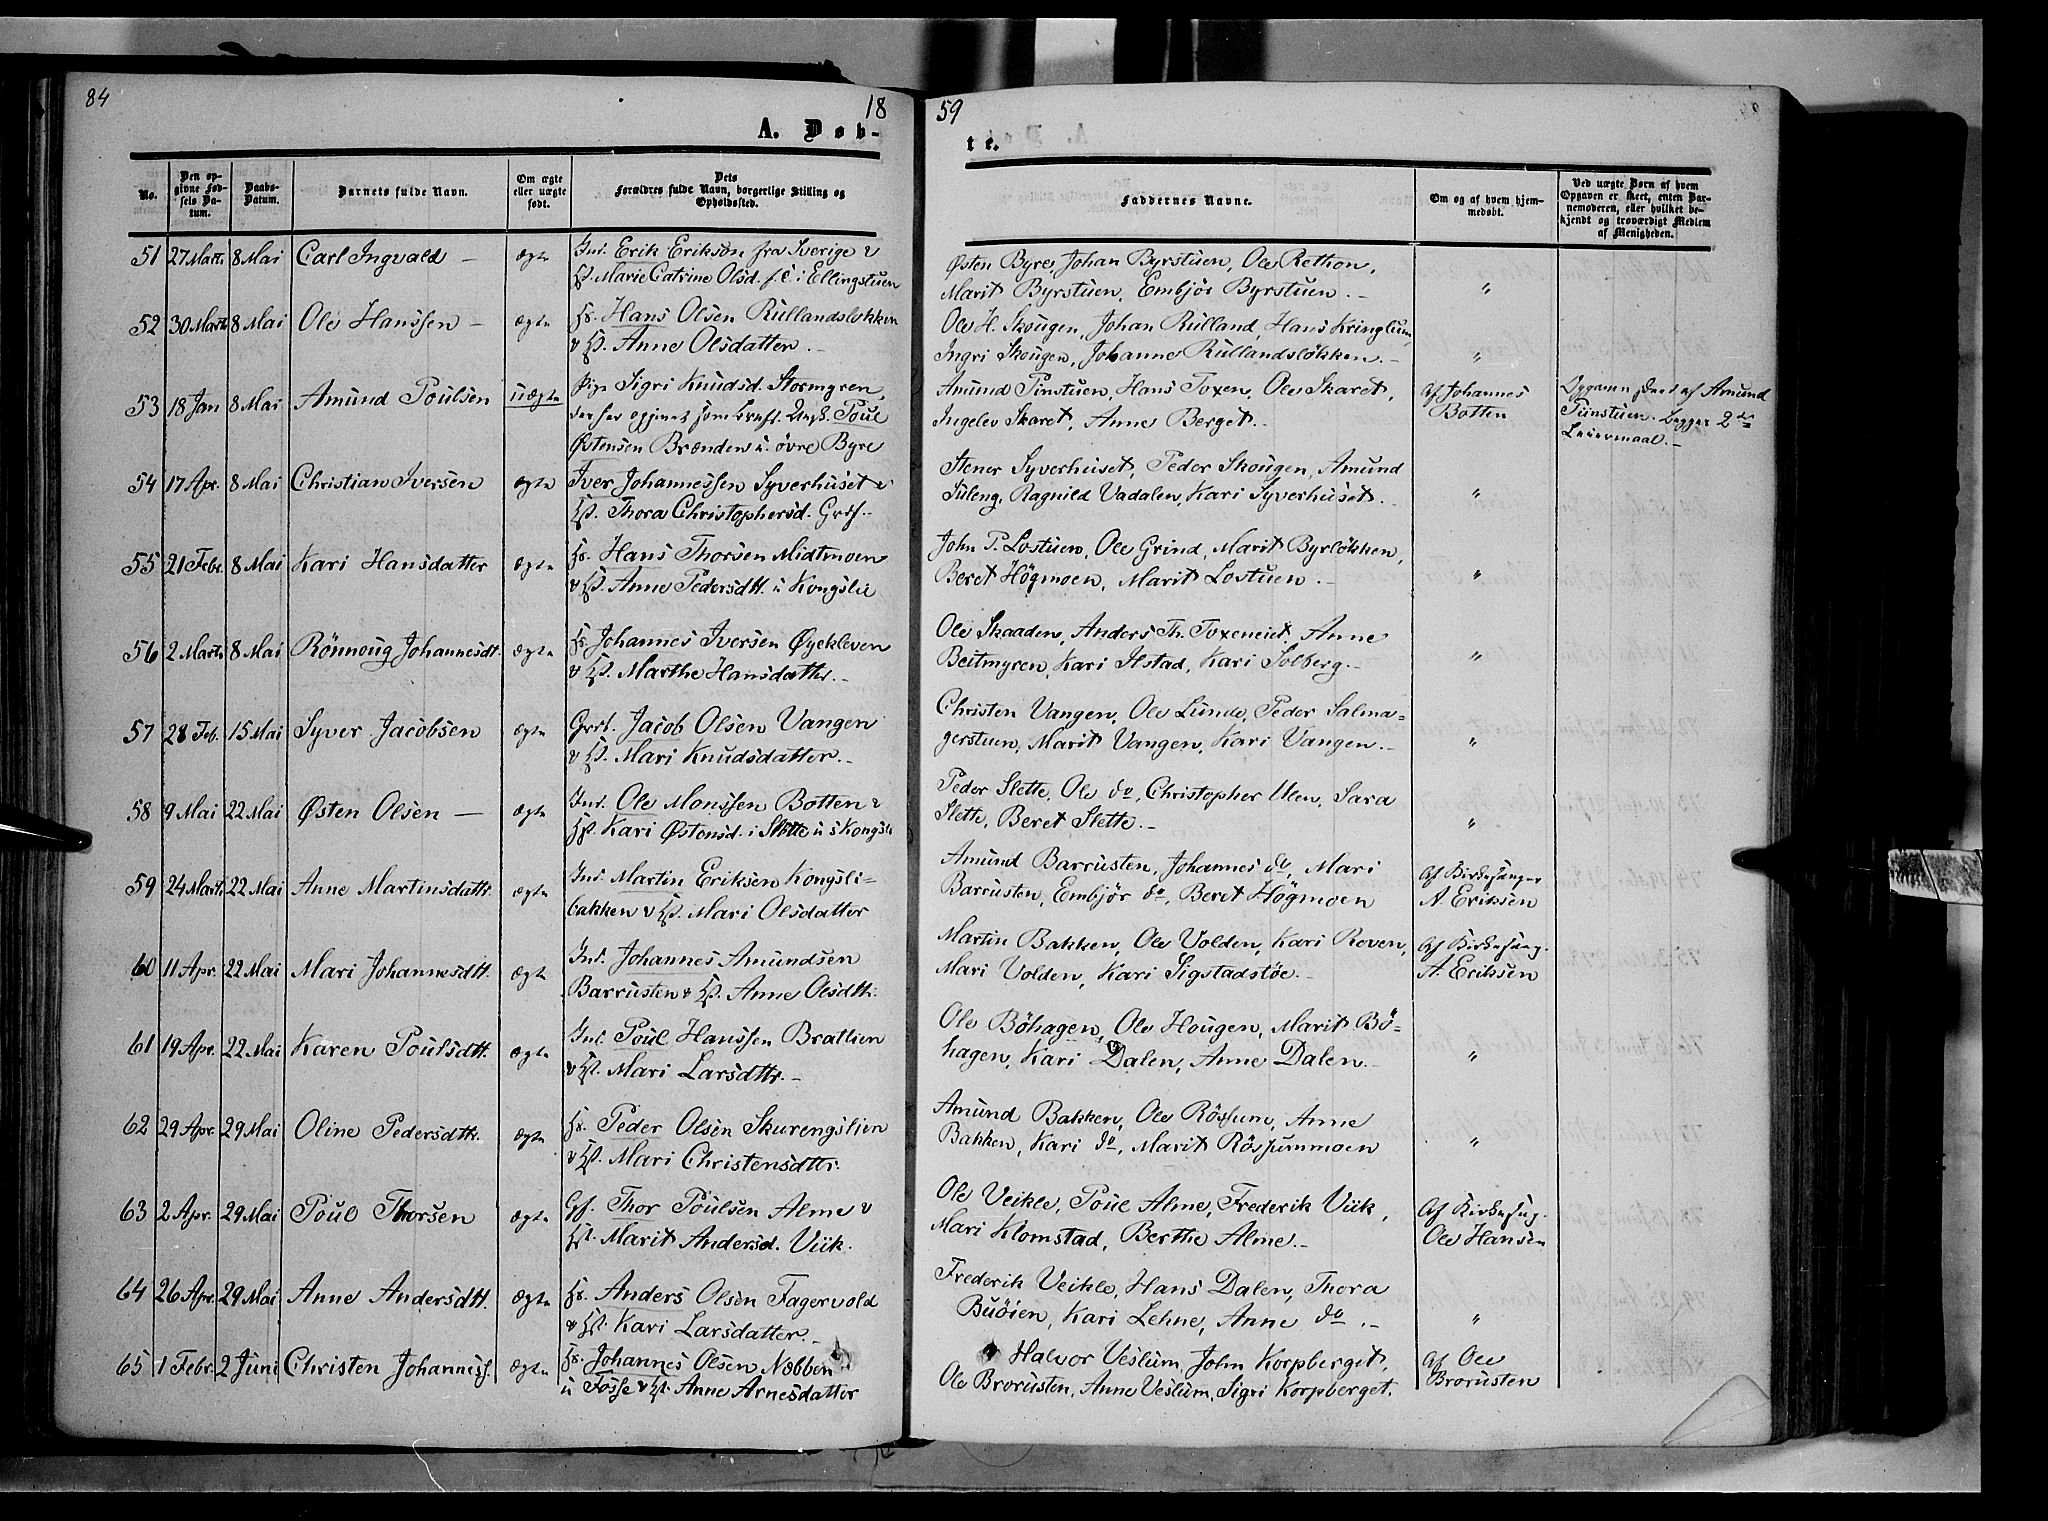 84
18
A. Døb-
No.
Den op-
givne Fød-
sels Da-
tum.
Daabs-
Datum.
Barnets fulde Navn.
Om ægte
eller uægte
født.
Dets
Forældres fulde Navn, borgerlige Stilling og
Opholdssted.
51 27 Marts 8 Mai Carl Ingvald – ægte Ind. Erik Erikson fra Sverige &
H. Marie Catrine Olsd. f.C. i Ellingstuen
52 30 Marts 8 Mai Ole Hanssen – ægte Hs. Hans Olsen Rullandsløkken
& H. Anne Olsdatter. –
53 18 Jan 8 Mai Amund Poulsen uægte Pige Sigri Knudsd. Stormyren,
der har opgivet som Barnef. Ungk. Poul
Østensen Brænden u. övre Byre
54 17 Apr. 8 Mai Christian Iversen ægte Iver Johannessen Syverhuset &
H. Thora Christophersd. Grdf. –
55 21 Febr. 8 Mai Kari Hansdatter ægte Hs. Hans Thorsen Midtmoen
& H. Anne Pedersdtt. u Kongslie
56 2 Marts 8 Mai Rönnoug Johannesdt. ægte Hs. Johannes Iversen Øyekleven
& H. Marthe Hansdatter. –
57 28 Feb. 15 Mai Syver Jacobsen ægte Grdb. Jacob Olsen Vangen
& H. Mari Knudsdatter. –
58 9 Mai 22 Mai Østen Olsen – ægte Ind. Ole Monssen Botten &
H. Kari Østensd. i Slette u s Kongsli
59 24 Marts 22 Mai Anne Martinsdattr ægte Ind. Martin Eriksen Kongsli-
bakken & H. Mari Olsdatter
60 11 Apr. 22 Mai Mari Johannesdtt. ægte Ind. Johannes Amundsen
Barrusten & H. Anne Olsdttr.
61 19 Apr. 22 Mai Karen Poulsdtt. ægte Ind. Poul Hanssen Bratlien
& H. Mari Larsdttr. –
62 29 Apr. 29 Mai Oline Pedersdtt. ægte Hs. Peder Olsen Skurengslien
& H. Mari Christensdttr.
63 2 Apr. 29 Mai Poul Thorsen ægte Gf. Thor Poulsen Alme &
H. Marit Andersd. Viik.
64 26 Apr. 29 Mai Anne Andersdtt. ægte Hs. Anders Olsen Fagervold
& H. Kari Larsdatter. –
65 1 Febr. 2 Juni Christen Johanness. ægte Hs. Johannes Olsen Næbben
u Fosse & H. Anne Arnesdatter
59
te.
Faddernes Navne.
Om og af hvem hjem-
medøbt.
Ved uægte Børn af hvem
Opgaven er skeet, enten Bar-
nemoderen, eller hvilket be-
kjendt og troværdigt Medlem
af Menigheden.
Østen Byre, Johan Byrstuen, Ole Rethon,
Marit Byrstuen, Embjör Byrstuen. – "
Ole H. Skougen, Johan Rulland, Hans Kringlum,
Ingri Skougen, Johanne Rullandslökken. – "
Amund Tunstuen, Hans Toxen, Ole Skaret, Af Johannes
Ingelev Skaret, Anne Berget. – Botten
af Amund
Tunstuen. Begges 2de
Leiermaal. –
Stener Syverhuset, Peder Skougen, Amund
Tuleng, Ragnild Vadalen, Kari Syverhuset. "
John P. Lostuen, Ole Grind, Marit Byrlökken,
Beret Högmoen, Marit Lostuen. – "
Ole Skaaden, Anders Th. Toxeneiet, Anne
Beitmyren, Kari Ilstad, Kari Solberg. – "
Christen Vangen, Ole Lunde, Peder Salma-
gerstuen, Marit Vangen, Kari Vangen. – "
Peder Slette, Ole do, Christopher Ulen, Sara
Slette, Beret Slette. – "
Amund Barrusten, Johannes do, Mari Af Kirkesanger
Barrusten, Embjör do, Beret Högmoen A. Eriksen
Martin Bakken, Ole Volden, Kari Roven, Af Kirkesang.
Mari Volden, Kari Sigstadstöe. – A. Eriksen
Ole Böhagen, Ole Hougen, Marit Bö-
hagen, Kari Dalen, Anne Dalen. – "
Amund Bakken, Ole Rössum, Anne
Bakken, Kari do, Marit Rössummoen "
Ole Veikle, Poul Alme, Frederik Viik, Af Kirkesag.
Mari Klomstad, Berthe Alme. – Ole Hansen
Frederik Veikle, Hans Dalen, Thora
Buöien, Kari Lehne, Anne do. – "
Halvor Veslum, John Korpberget, Af Ole
Ole Brorusten, Anne Veslum, Sigri Korpberget. Brorusten